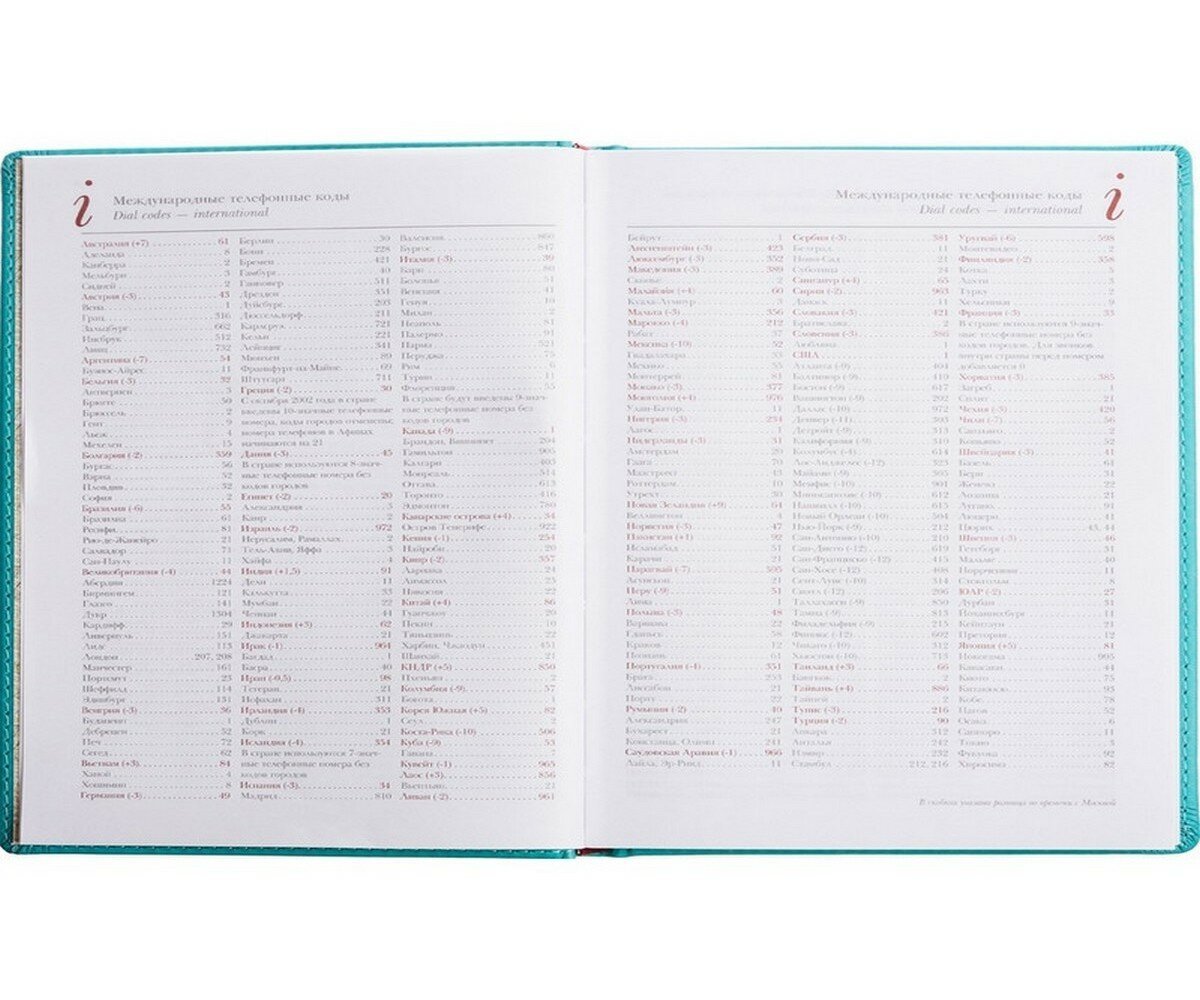 Международные телефонные коды
Dial codes — international
Австралия (+7) 61
Аделаида 8
Канберра 2
Мельбурн 3
Сидней 2
Австрия (-3) 43
Вена 1
Грац 316
Зальцбург 662
Инсбрук 512
Линц 732
Аргентина (-7) 54
Буэнос-Айрес 11
Бельгия (-3) 32
Антверпен 3
Брюгге 50
Брюссель 2
Гент 9
Льеж 4
Мехелен 15
Болгария (-2) 359
Бургас 56
Варна 52
Пловдив 32
София 2
Бразилия (-6) 55
Бразилиа 61
Ресифи 81
Рио-де-Жанейро 21
Салвадор 71
Сан-Паулу 11
Великобритания (-4) 44
Абердин 1224
Бирмингем 121
Глазго 141
Дувр 1304
Кардифф 29
Ливерпуль 151
Лидс 113
Лондон 207, 208
Манчестер 161
Портсмут 23
Шеффилд 114
Эдинбург 131
Венгрия (-3) 36
Будапешт 1
Дебрецен 52
Печ 72
Сегед 62
Вьетнам (+3) 84
Ханой 4
Хошимин 8
Германия (-3) 49
Берлин 30
Бонн 228
Бремен 421
Гамбург 40
Ганновер 511
Дрезден 351
Дуйсбург 203
Дюссельдорф 211
Карлсруэ 721
Кельн 221
Лейпциг 341
Мюнхен 89
Франкфурт-на-Майне 69
Штутгарт 711
Греция (-2) 30
С октября 2002 года в стране
введены 10-значные телефонные
номера, коды городов отменены,
номера телефонов в Афинах
начинаются на 21
Дания (-3) 45
В стране используются 8-знач-
ные телефонные номера без
кодов городов
Египет (-2) 20
Александрия 3
Каир 2
Израиль (-2) 972
Иерусалим, Рамаллах 2
Тель-Авив, Яффа 3
Хайфа 4
Индия (+1,5) 91
Дели 11
Калькутта 33
Мумбаи 22
Ченнаи 44
Индонезия (+3) 62
Джакарта 21
Ирак (-1) 964
Багдад 1
Басра 40
Иран (-0,5) 98
Тегеран 21
Исфахан 311
Ирландия (-4) 353
Дублин 1
Корк 21
Исландия (-4) 354
В стране используются 7-знач-
ные телефонные номера без
кодов городов
Испания (-3) 34
Мадрид 810
Валенсия 860
Бургос 847
Италия (-3) 39
Бари 80
Болонья 51
Венеция 41
Генуя 10
Милан 2
Неаполь 81
Палермо 91
Парма 521
Перуджа 75
Рим 6
Турин 11
Флоренция 55
В стране будут введены 9-знач-
ные телефонные номера без
кодов городов
Канада (-9) 1
Брандон, Виннипег 204
Гамильтон 905
Калгари 403
Монреаль 514
Оттава 613
Торонто 416
Эдмонтон 780
Канарские острова (+4) 34
Остров Тенерифе 922
Кения (-1) 254
Найроби 20
Кипр (-2) 357
Ларнака 24
Лимассол 25
Никосия 22
Китай (+4) 86
Гуанчжоу 20
Пекин 10
Тяньцзинь 22
Харбин, Чжаодун 451
Шанхай 21
КНДР (+5) 850
Пхеньян 2
Колумбия (-9) 57
Богота 1
Корея Южная (+5) 82
Сеул 2
Коста-Рика (-10) 506
Куба (-9) 53
Гавана 7
Кувейт (-1) 965
Лаос (+3) 856
Вьентьян 21
Ливан (-2) 961
Международные телефонные коды
Dial codes — international
Бейрут 1
Лихтенштейн (-3) 423
Люксембург (-3) 352
Македония (-3) 389
Скопье 2
Малайзия (+4) 60
Куала-Лумпур 3
Мальта (-3) 356
Марокко (-4) 212
Рабат 37
Мексика (-10) 52
Гвадалахара 33
Мехико 55
Монтеррей 81
Монако (-3) 377
Монголия (+4) 976
Улан-Батор 11
Нигерия (-3) 234
Лагос 1
Нидерланды (-3) 31
Амстердам 20
Гаага 70
Маастрихт 43
Роттердам 10
Утрехт 30
Новая Зеландия (+9) 64
Веллингтон 4
Норвегия (-3) 47
Пакистан (+1) 92
Исламабад 51
Карачи 21
Парагвай (-7) 595
Асунсьон 21
Перу (-9) 51
Лима 1
Польша (-3) 48
Варшава 22
Гданьск 58
Краков 12
Познань 61
Португалия (-4) 351
Брага 253
Лиссабон 21
Порту 22
Румыния (-2) 40
Александрия 247
Бухарест 21
Констанца, Олимп 241
Саудовская Аравия (-1) 966
Лайла, Эр-Рияд 11
Сербия (-3) 381
Белград 11
Нови-Сад 21
Суботица 24
Сингапур (+4) 65
Сирия (-2) 963
Дамаск 11
Словакия (-3) 421
Братислава 2
Словения (-3) 386
Любляна 1
США 1
Атланта (-9) 404
Балтимор (-9) 410
Бостон (-9) 617
Вашингтон (-9) 202
Даллас (-10) 972
Денвер (-11) 303
Детройт (-9) 313
Калифорния (-9) 310
Колумбус (-9) 614
Лос-Анджелес (-12) 323
Майами (-9) 305
Мемфис (-10) 901
Миннеаполис (-10) 612
Нашвилл (-10) 615
Новый Орлеан (-10) 504
Нью-Йорк (-9) 212
Сан-Антонио (-10) 210
Сан-Диего (-12) 619
Сан-Франциско (-12) 415
Сан-Хосе (-12) 408
Сент-Луис (-10) 314
Сиэтл (-12) 206
Таллахасси (-9) 850
Тампа (-9) 813
Филадельфия (-9) 215
Финикс (-12) 602
Чикаго (-10) 312
Хьюстон (-10) 713
Таиланд (+3) 66
Бангкок 2
Тайвань (+4) 886
Тайпей 2
Тунис (-3) 216
Турция (-2) 90
Анкара 312
Анталья 242
Измир 232
Стамбул 212, 216
Уругвай (-6) 598
Монтевидео 2
Финляндия (-2) 358
Котка 5
Лахти 3
Турку 2
Хельсинки 9
Франция (-3) 33
В стране используются 9-знач-
ные телефонные номера без
кодов городов. Для звонков
внутри страны перед номером
добавляется 0
Хорватия (-3) 385
Загреб 1
Сплит 21
Чехия (-3) 420
Чили (-7) 56
Сантьяго 2
Копьяпо 52
Швейцария (-3) 41
Базель 61
Берн 31
Женева 22
Лозанна 21
Лугано 91
Люцерн 41
Цюрих 43, 44
Швеция (-3) 46
Гетеборг 31
Мальме 40
Норрчепинг 11
Стокгольм 8
ЮАР (-2) 27
Дурбан 31
Йоханнесбург 11
Кейптаун 21
Претория 12
Япония (+5) 81
Иокогама 995
Кавасаки 44
Киото 75
Китакюсю 93
Кобе 78
Нагоя 52
Осака 6
Саппоро 11
Токио 3
Фукуока 92
Хиросима 82
В скобках указана разница во времени с Москвой